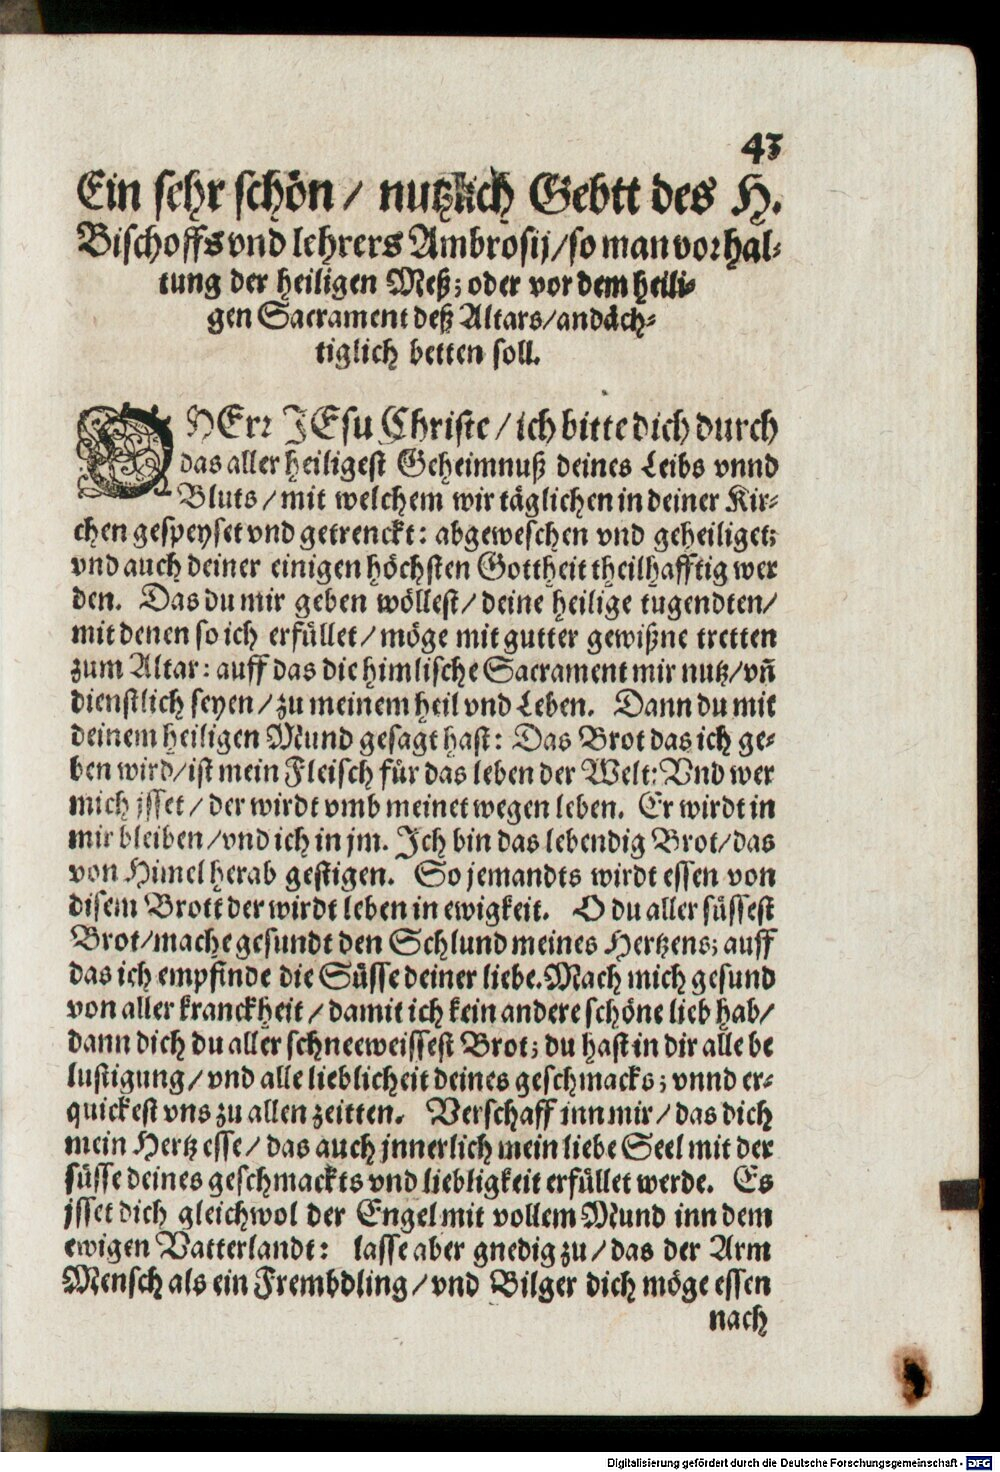 43
Ein sehr schön / nutzlich Gebtt des H.
Bischoffs vnd lehrers Ambrosij / so man vor hal-
tung der heiligen Meß; oder vor dem heili-
gen Sacrament deß Altars / andäch-
tiglich betten soll.
O HErr JEsu Christe / ich bitte dich durch
das aller heiligest Geheimnuß deines Leibs vnnd
Bluts / mit welchem wir täglichen in deiner Kir-
chen gespeyset vnd getrenckt: abgeweschen vnd geheiliget;
vnd auch deiner einigen höchsten Gottheit theilhafftig wer
den. Das du mir geben wöllest / deine heilige tugendten /
mit denen so ich erfüllet / möge mit gutter gewißne tretten
zum Altar: auff das die himlische Sacrament mir nutz / vñ
dienstlich seyen / zu meinem heil vnd Leben. Dann du mit
deinem heiligen Mund gesagt hast: Das Brot das ich ge-
ben wird / ist mein Fleisch für das leben der Welt: Vnd wer
mich jsset / der wirdt vmb meinet wegen leben. Er wirdt in
mir bleiben / vnd ich in jm. Ich bin das lebendig Brot / das
von Himel herab gestigen. So jemandts wirdt essen von
disem Brott der wirdt leben in ewigkeit. O du aller süssest
Brot / mache gesundt den Schlund meines Hertzens; auff
das ich empfinde die Süsse deiner liebe. Mach mich gesund
von aller kranckheit / damit ich kein andere schöne lieb hab /
dann dich du aller schneeweissest Brot; du hast in dir alle be
lustigung / vnd alle lieblicheit deines geschmacks; vnnd er-
quickest vns zu allen zeitten. Verschaff inn mir / das dich
mein Hertz esse / das auch jnnerlich mein liebe Seel mit der
süsse deines geschmackts vnd liebligkeit erfüllet werde. Es
jsset dich gleichwol der Engel mit vollem Mund inn dem
ewigen Vatterlandt: lasse aber gnedig zu / das der Arm
Mensch als ein Frembdling / vnd Bilger dich möge essen
nach
Digitalisierung gefördert durch die Deutsche Forschungsgemeinschaft - DFG